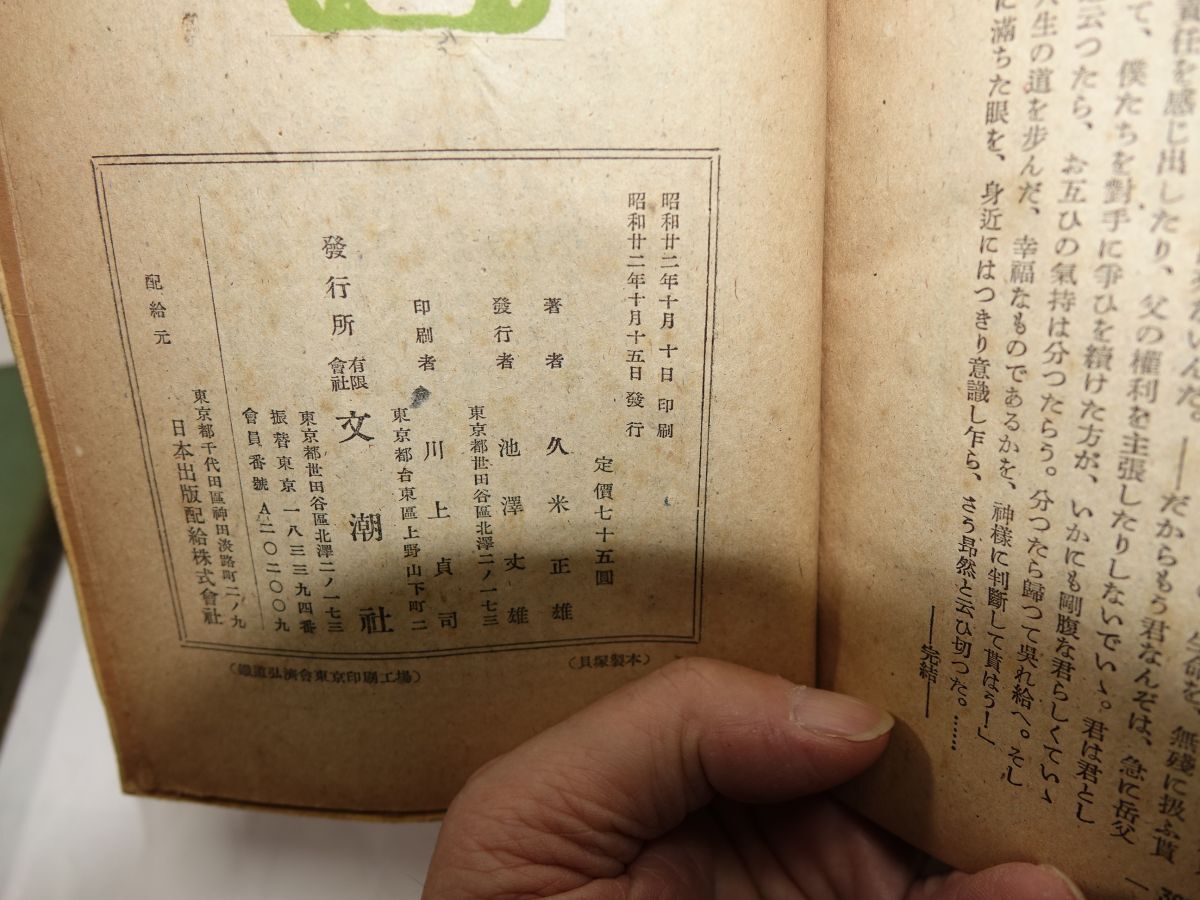 責任を感じ出したり、父の權利を主張したりしないでいゝ。君は君とし
て、僕たちを對手に爭ひを續けた方が、いかにも剛腹な君らしくていゝ
云つたら、お互ひの氣持は分つたらう。分つたら歸つて吳れ給へ。そし
人生の道を步んだ、幸福なものであるかを、神樣に判斷して貰はう！」
に滿ちた眼を、身近にはつきり意識し乍ら、さう昂然と云ひ切つた。……
――完結――
昭和廿二年十月十日印刷
昭和廿二年十月十五日發行
定價七十五圓
著者 久米正雄
發行者 池澤丈雄
東京都世田谷區北澤二ノ一七三
印刷者 川上貞司
東京都台東區上野山下町二
發行所 有限會社 文潮社
東京都世田谷區北澤二ノ一七三
振替東京一八三三九四番
會員番號A二〇二〇〇九
配給元
東京都千代田區神田淡路町二ノ九
日本出版配給株式會社
（貝塚製本）
（鐵道弘濟會東京印刷工場）